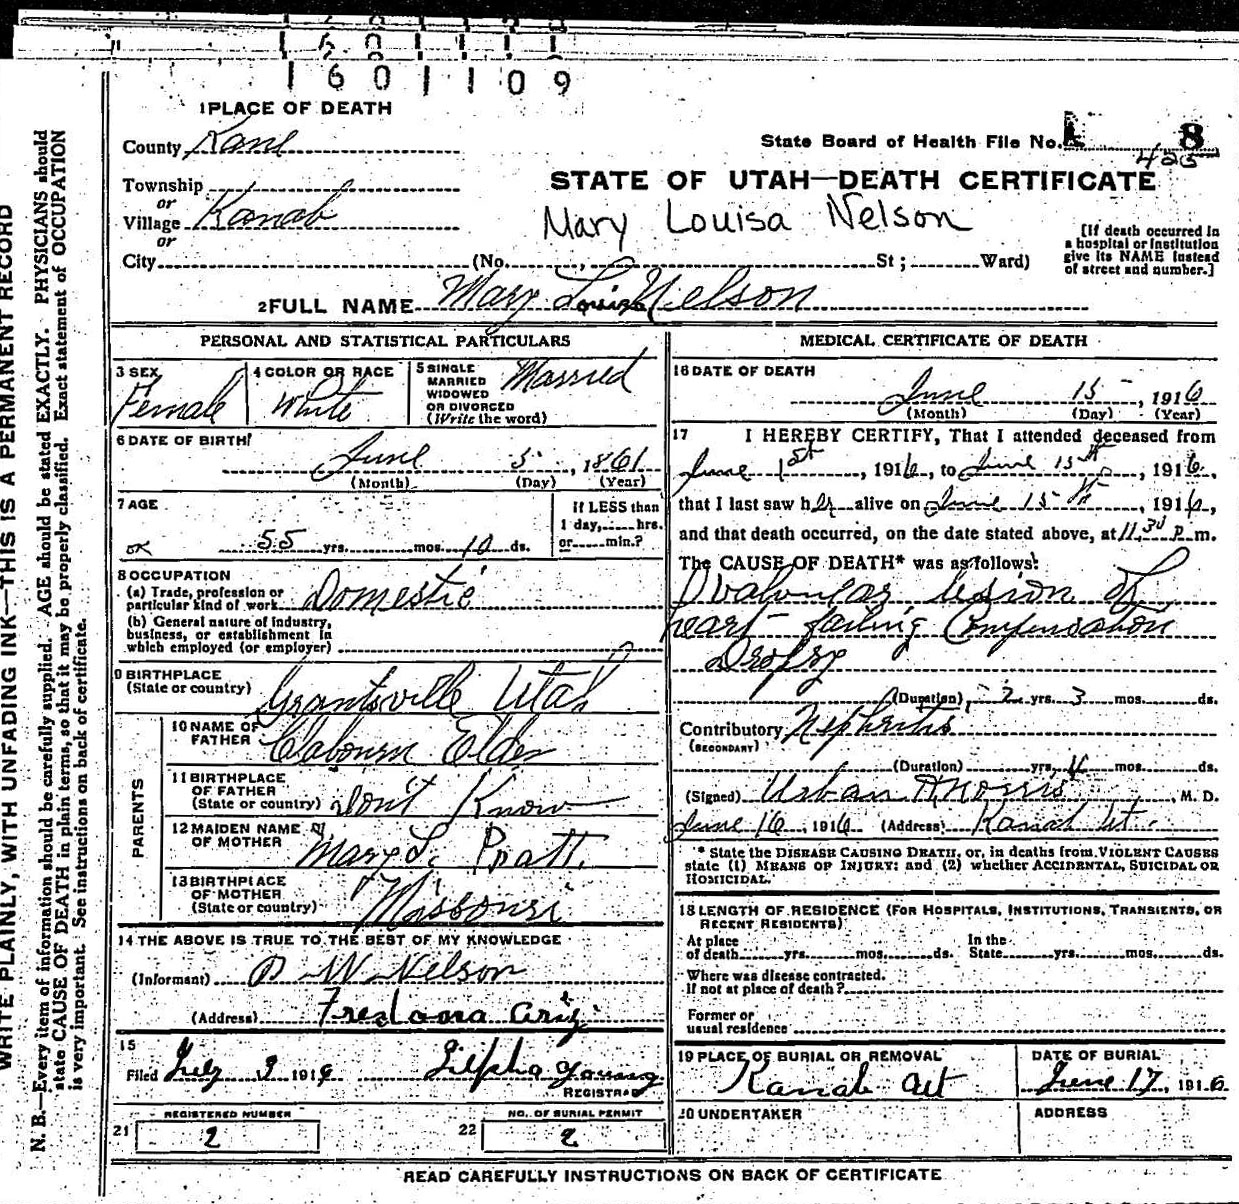 1601109
1 PLACE OF DEATH
County Kane
State Board of Health File No. 8
425
Township
or
Village Kanab
or
STATE OF UTAH—DEATH CERTIFICATE
Mary Louisa Nelson
City (No. , St ; Ward)
[If death occurred in
a hospital or institution
give its NAME instead
of street and number.]
2 FULL NAME Mary Louisa Nelson
PERSONAL AND STATISTICAL PARTICULARS
3 SEX
Female
4 COLOR OR RACE
White
5 SINGLE
MARRIED
WIDOWED
OR DIVORCED
(Write the word)
Married
6 DATE OF BIRTH
June 5, 1861
(Month) (Day) (Year)
7 AGE
55 yrs. mos. 10 ds.
If LESS than
1 day, hrs.
or min.?
OK
8 OCCUPATION
(a) Trade, profession or
particular kind of work Domestic
(b) General nature of industry,
business, or establishment in
which employed (or employer)
9 BIRTHPLACE
(State or country) Grantsville Utah
PARENTS
10 NAME OF
FATHER Clabourn Elder
11 BIRTHPLACE
OF FATHER
(State or country) Don't Know
12 MAIDEN NAME
OF MOTHER Mary L. Pratt
13 BIRTHPLACE
OF MOTHER
(State or country) Missouri
14 THE ABOVE IS TRUE TO THE BEST OF MY KNOWLEDGE
(Informant) D W Nelson
(Address) Fredonia Ariz
15
Filed July 3 1916 Zilpha Young
REGISTRAR
REGISTERED NUMBER
21 2
NO. OF BURIAL PERMIT
22 2
MEDICAL CERTIFICATE OF DEATH
16 DATE OF DEATH
June 15, 1916
(Month) (Day) (Year)
17 I HEREBY CERTIFY, That I attended deceased from
June 1st, 1916, to June 15th, 1916,
that I last saw her alive on June 15th, 1916,
and that death occurred, on the date stated above, at 11.30 P.m.
The CAUSE OF DEATH* was as follows:
Valvular lesion of
heart failing Compensation
Dropsy
(Duration) 2 yrs. 3 mos. ds.
Contributory Nephritis
(SECONDARY)
(Duration) yrs. 4 mos. ds.
(Signed) Urban A Norris, M. D.
June 16, 1916 (Address) Kanab Ut.
* State the DISEASE CAUSING DEATH, or, in deaths from VIOLENT CAUSES
state (1) MEANS OF INJURY; and (2) whether ACCIDENTAL, SUICIDAL OR
HOMICIDAL.
18 LENGTH OF RESIDENCE (FOR HOSPITALS, INSTITUTIONS, TRANSIENTS, OR
RECENT RESIDENTS)
At place
of death yrs. mos. ds.
In the
State yrs. mos. ds.
Where was disease contracted,
If not at place of death?
Former or
usual residence
19 PLACE OF BURIAL OR REMOVAL
Kanab Ut
DATE OF BURIAL
June 17, 1916
20 UNDERTAKER
ADDRESS
READ CAREFULLY INSTRUCTIONS ON BACK OF CERTIFICATE
WRITE PLAINLY, WITH UNFADING INK—THIS IS A PERMANENT RECORD
N. B.—Every item of information should be carefully supplied. AGE should be stated EXACTLY. PHYSICIANS should
state CAUSE OF DEATH in plain terms, so that it may be properly classified. Exact statement of OCCUPATION
is very important. See instructions on back of certificate.